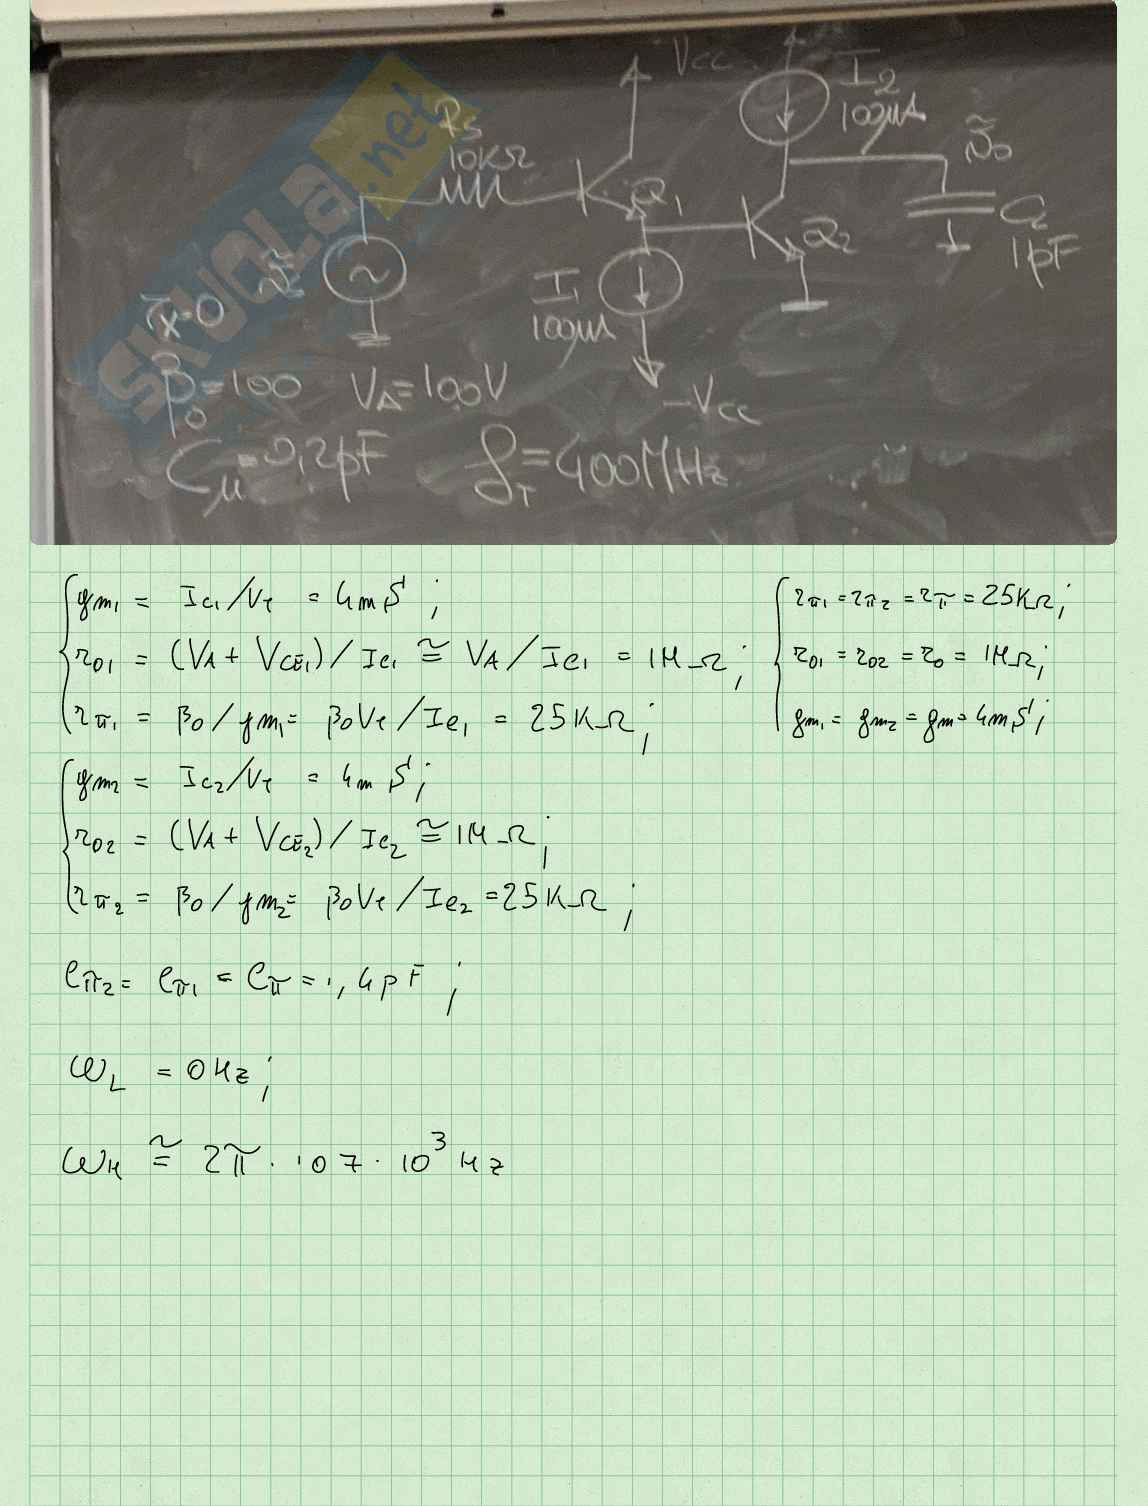 Vcc
I₂
100µA
Rs
10KΩ
ṽo
Q₁
Q₂
CL
1pF
I₁
100µA
rx=0
SKUOLA.net
β₀=100 VA=100V
-Vcc
Cµ=0,2pF fT=400MHz
gm₁ = Ic₁/Vt = 4mS;
ro₁ = (VA + VCE₁)/Ic₁ ≅ VA/Ic₁ = 1MΩ;
rπ₁ = β₀/gm₁= β₀Vt/Ic₁ = 25KΩ;
rπ₁ = rπ₂ = rπ = 25KΩ;
ro₁ = ro₂ = ro = 1MΩ;
gm₁ = gm₂ = gm = 4mS;
gm₂ = Ic₂/Vt = 4mS;
ro₂ = (VA + VCE₂)/Ic₂ ≅ 1MΩ;
rπ₂ = β₀/gm₂= β₀Vt/Ic₂ = 25KΩ;
Cπ₂ = Cπ₁ = Cπ = 1,4pF;
ωL = 0Hz;
ωH ≅ 2π · 107 · 10³ Hz